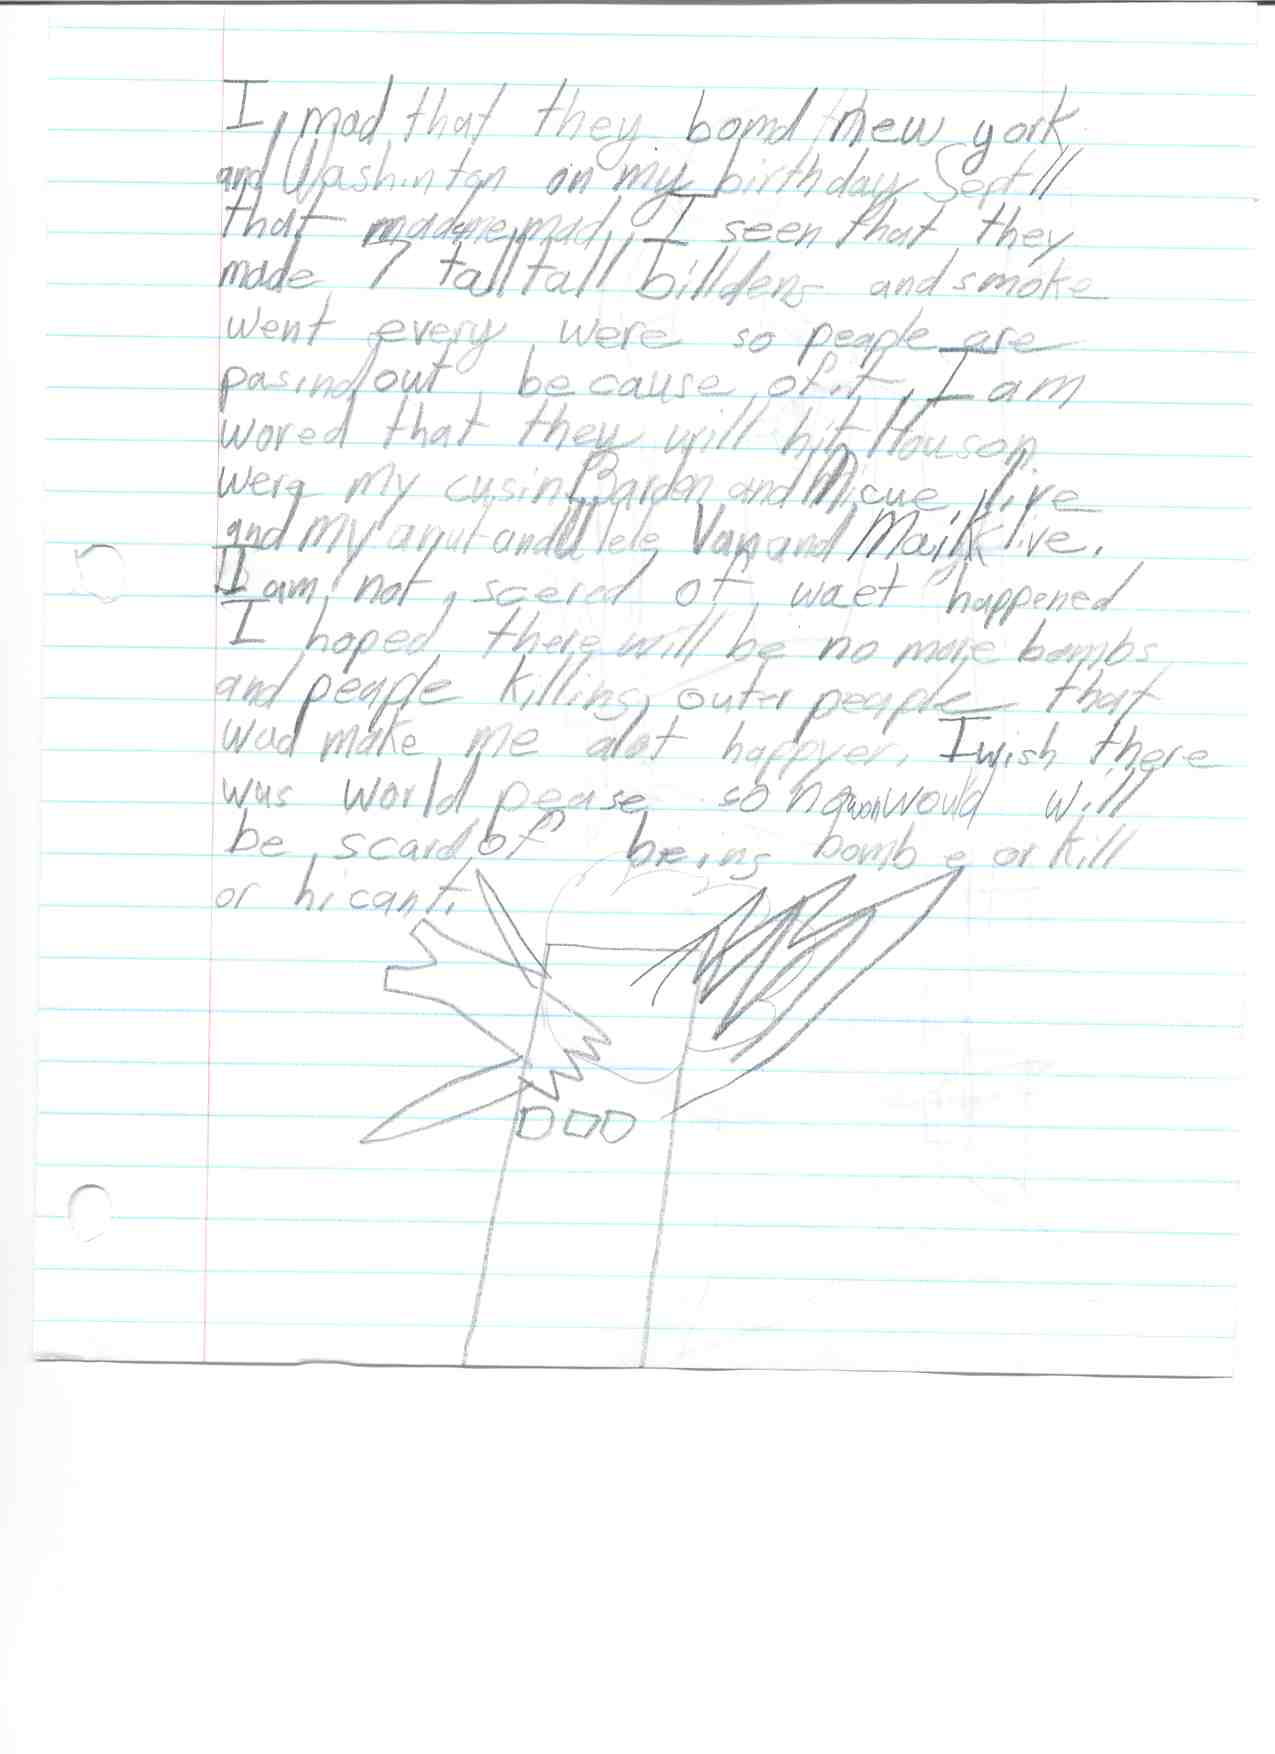 I, mad that they bomd new york
and Washintan on my birthday Sept 11
that made me mad. I seen that they
made 7 tall tall billdens and smoke
went every were so peaple are
pasind out because of it, I am
wored that they will hit Houson.
were my cusin Barden and Nicue live
and my anut and Uele Van and Maik live.
I am not scered of waet happened
I hoped there will be no more bombs
and peaple killing outer peaple that
wud make me alot happyer. I wish there
was world pease so no won would will
be scard of being bomb e or kill
or hi cant.